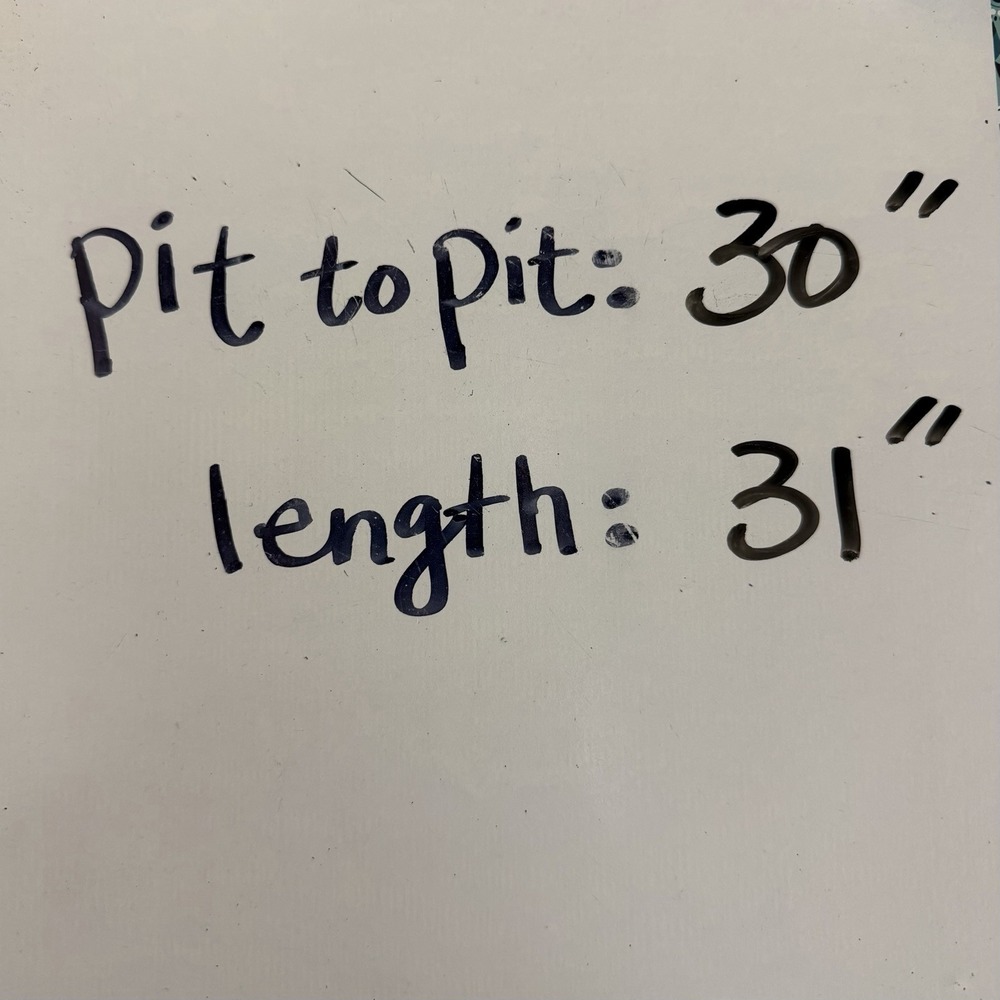 pit to pit: 30"
length: 31"